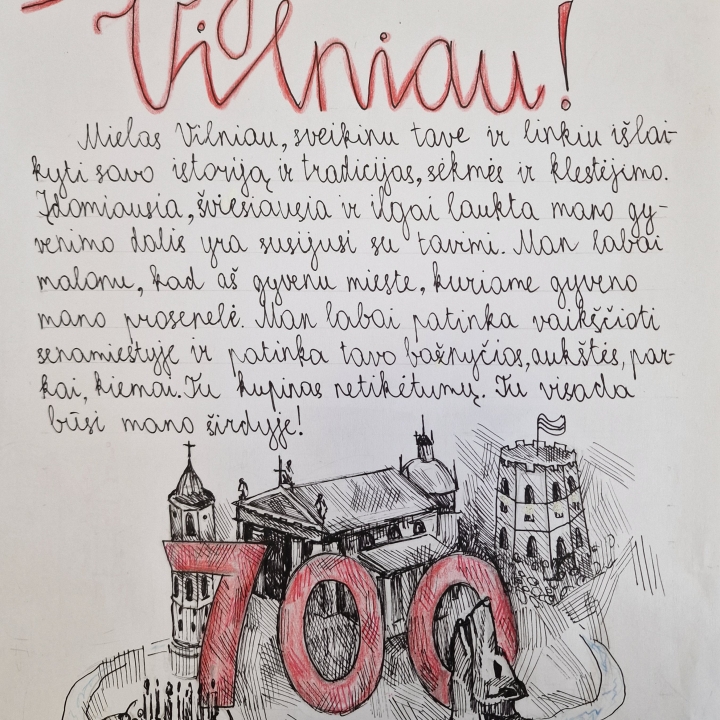 Vilniau!
Mielas Vilniau, sveikinu tave ir linkiu išlai-
kyti savo istoriją ir tradicijas, sėkmės ir klestėjimo.
Įdomiausia, šviesiausia ir ilgai laukta mano gy-
venimo dalis yra susijusi su tavimi. Man labai
malonu, kad aš gyvenu mieste, kuriame gyveno
mano prosenelė. Man labai patinka vaikščioti
senamiestyje ir patinka tavo bažnyčios, aukštės, par-
kai, kiemai. Tu kupinas netikėtumų. Tu visada
būsi mano širdyje!
700